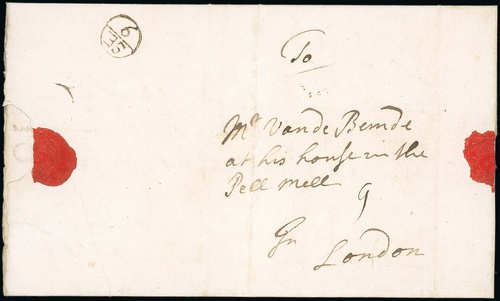 6
SE
To
Mr Vande Bemde
at his house in the
Pell Mell
9
In
London